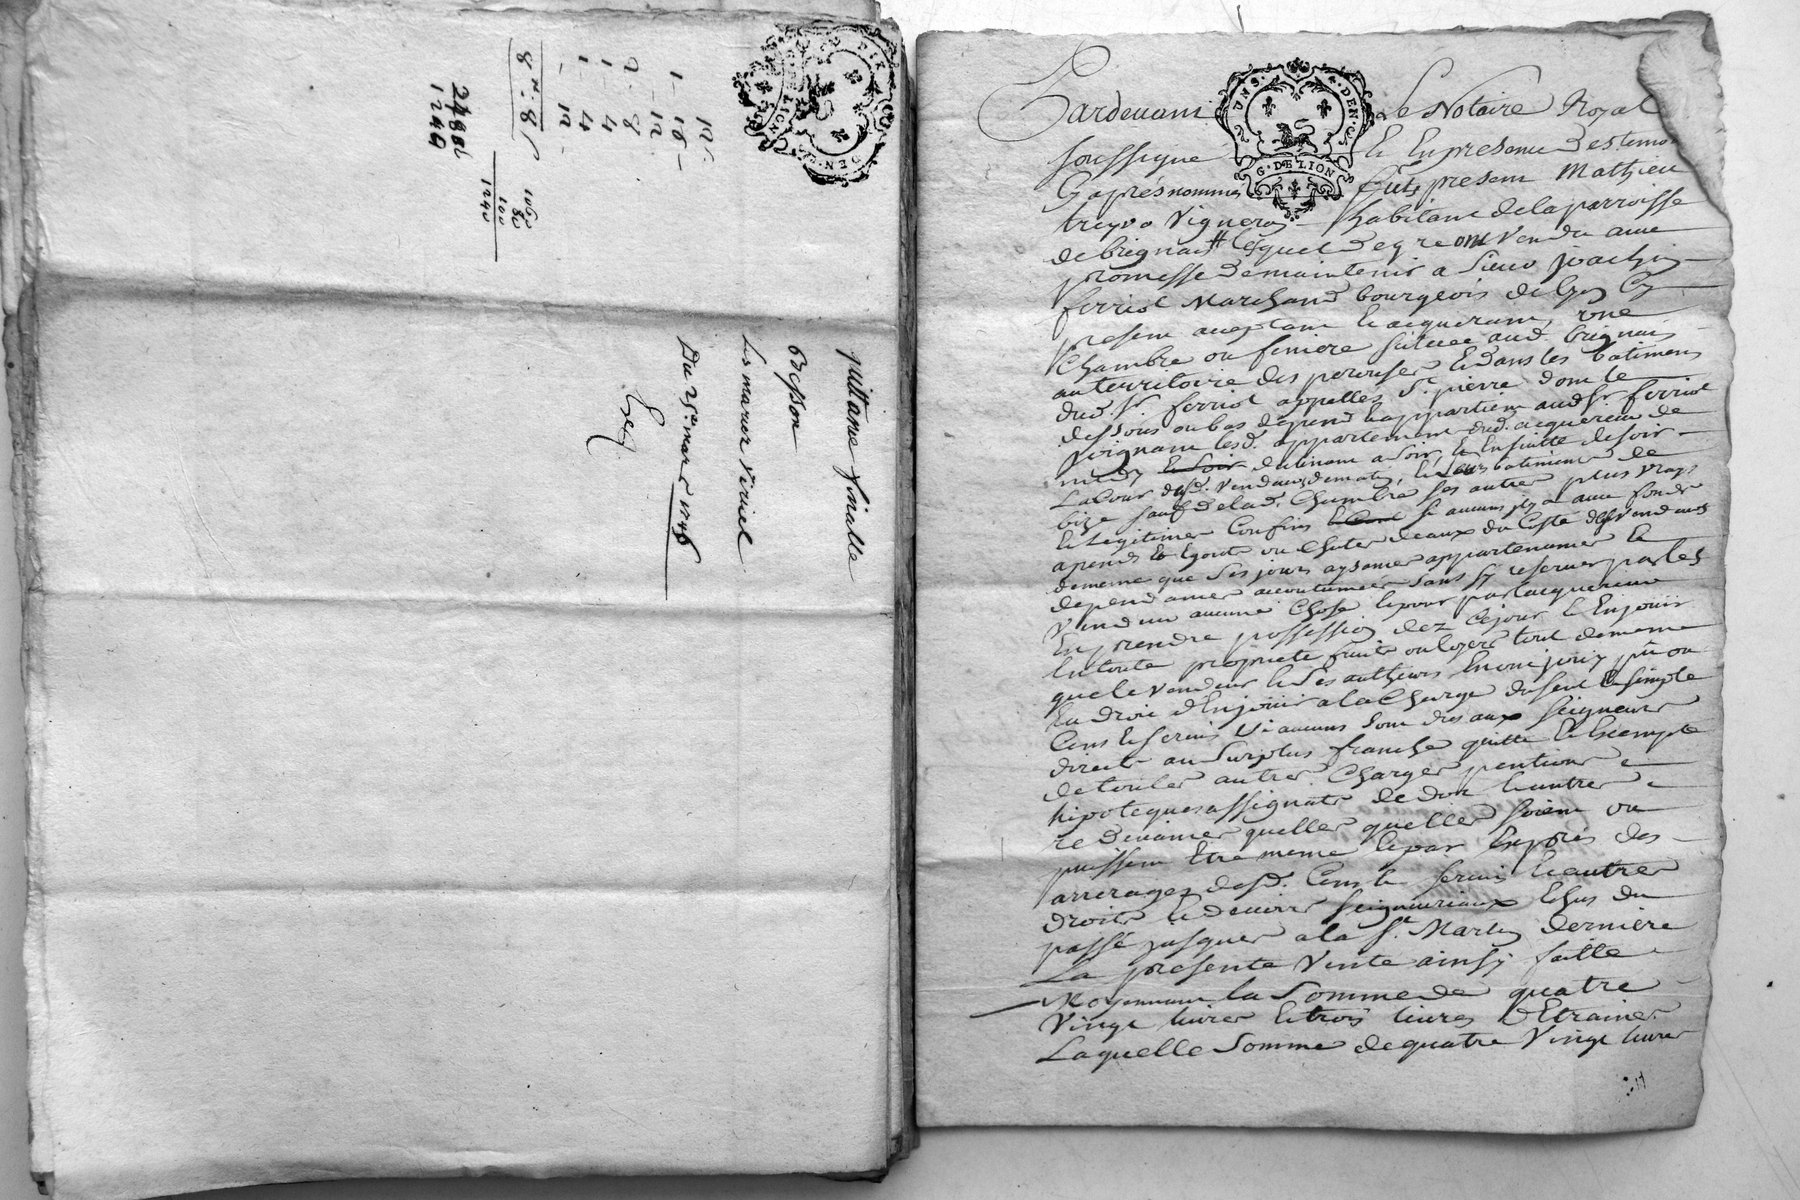 quittance finalle
Besson
Les mariés Viriel
Du 25e mars 1746
12
1 - 16 -
12
8
1 - 4
1 - 4
- 12 -
8 - 8
1060
100
80
1240
1240
G. DE LION
DEN.
Pardevant Le Notaire Royal
soussigné Et En presence des temoi
Cy aprés nommés fut present Mathieu
treyvo Vigneron habitant de la parroisse
de brignais Lequel de gré ont vendu avec
promesse de maintenir a Sieur joachin
ferriol Marchand bourgeois de Lyon Cy
present acceptant Et acquerant, une
Chambre ou feniere scituee aud. brignais
au territoire des perouses Et dans les batimens
dud. Sr. ferriol appellés St. pierre dont le
dessous ou bas depend Et appartient aud Sr ferriol
joignant lesd. appartement dud. acquereur de
midy Et Soir declinant a Soir, Et Ensuitte de soir
La Cour desd. Vendeurs de matin, Et batiment de
bize sauf de lad. Chambre ses autres plus vrays
Et Legitimes Confins si aucuns il y a avec fonds
apends Et Egouts ou Chutes deaux du Costé desd Vendeurs
de meme que ses jours aysances appartenances Et
dependances accoutumées sans sy reserver par les
Vendeur aucune Chose Et pour par lacquereur
En prendre possession dez Cejour Et Enjouir
En toute proprieté fruits ou loyers tout de meme
que le vendeur Et ses autheurs En ont jouy pû ou
Eu droit d'Enjouir a la Charge du seul Et simple
Cens Et servis Si aucuns sont dus aux seigneurs
directs au Surplus franche quitte Et Exempte
de toutes autres Charges pentions
hipoteques assignats de dot Et autres
redevances quelles quelles soient ou
puissent Etre meme Et par Exprés des
arrerages desd. Cens Et servis Et autres
droits Et devoirs seigneuriaux Echus du
passé jusques a la St. Martin derniere
La presente Vente ainsy faitte
Moyennant la Somme de quatre
Vingt livres Et trois livres d'Etraines
Laquelle Somme de quatre Vingt livres